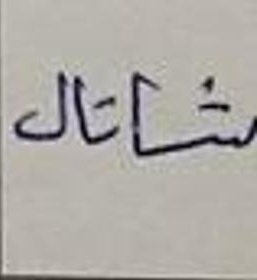 شاتال